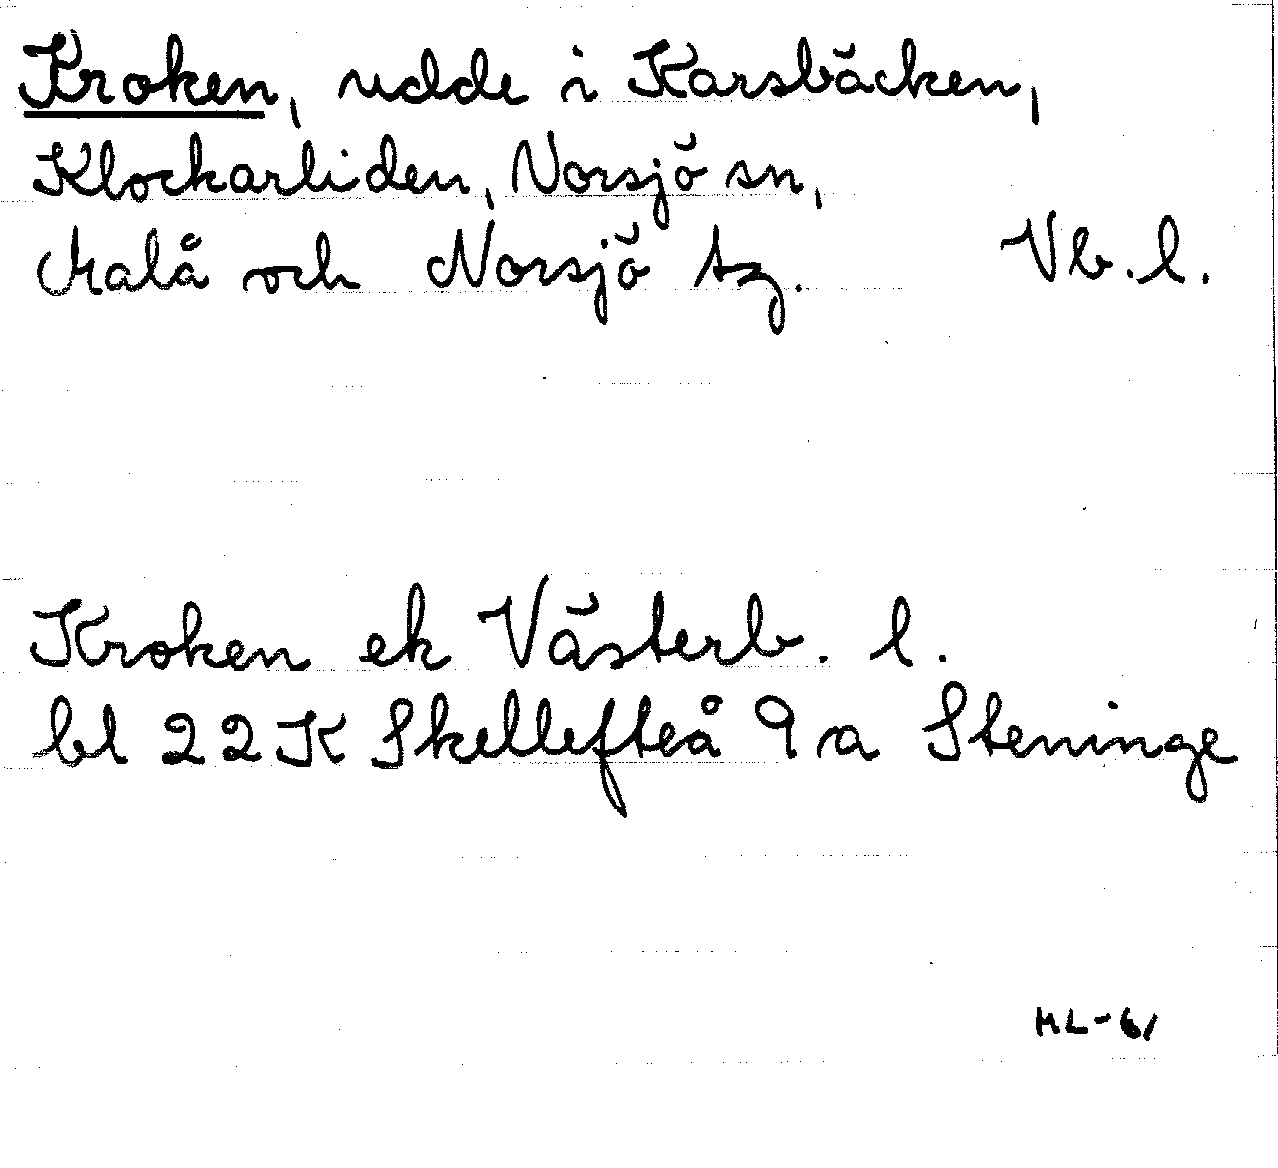 Kroken, udde i Karsbäcken,
Klockarliden, Norsjö sn,
Malå och Norsjö tg. Vb. l.
Kroken ek Västerb. l.
bl 22K Skellefteå 9 a Steninge
ML-61